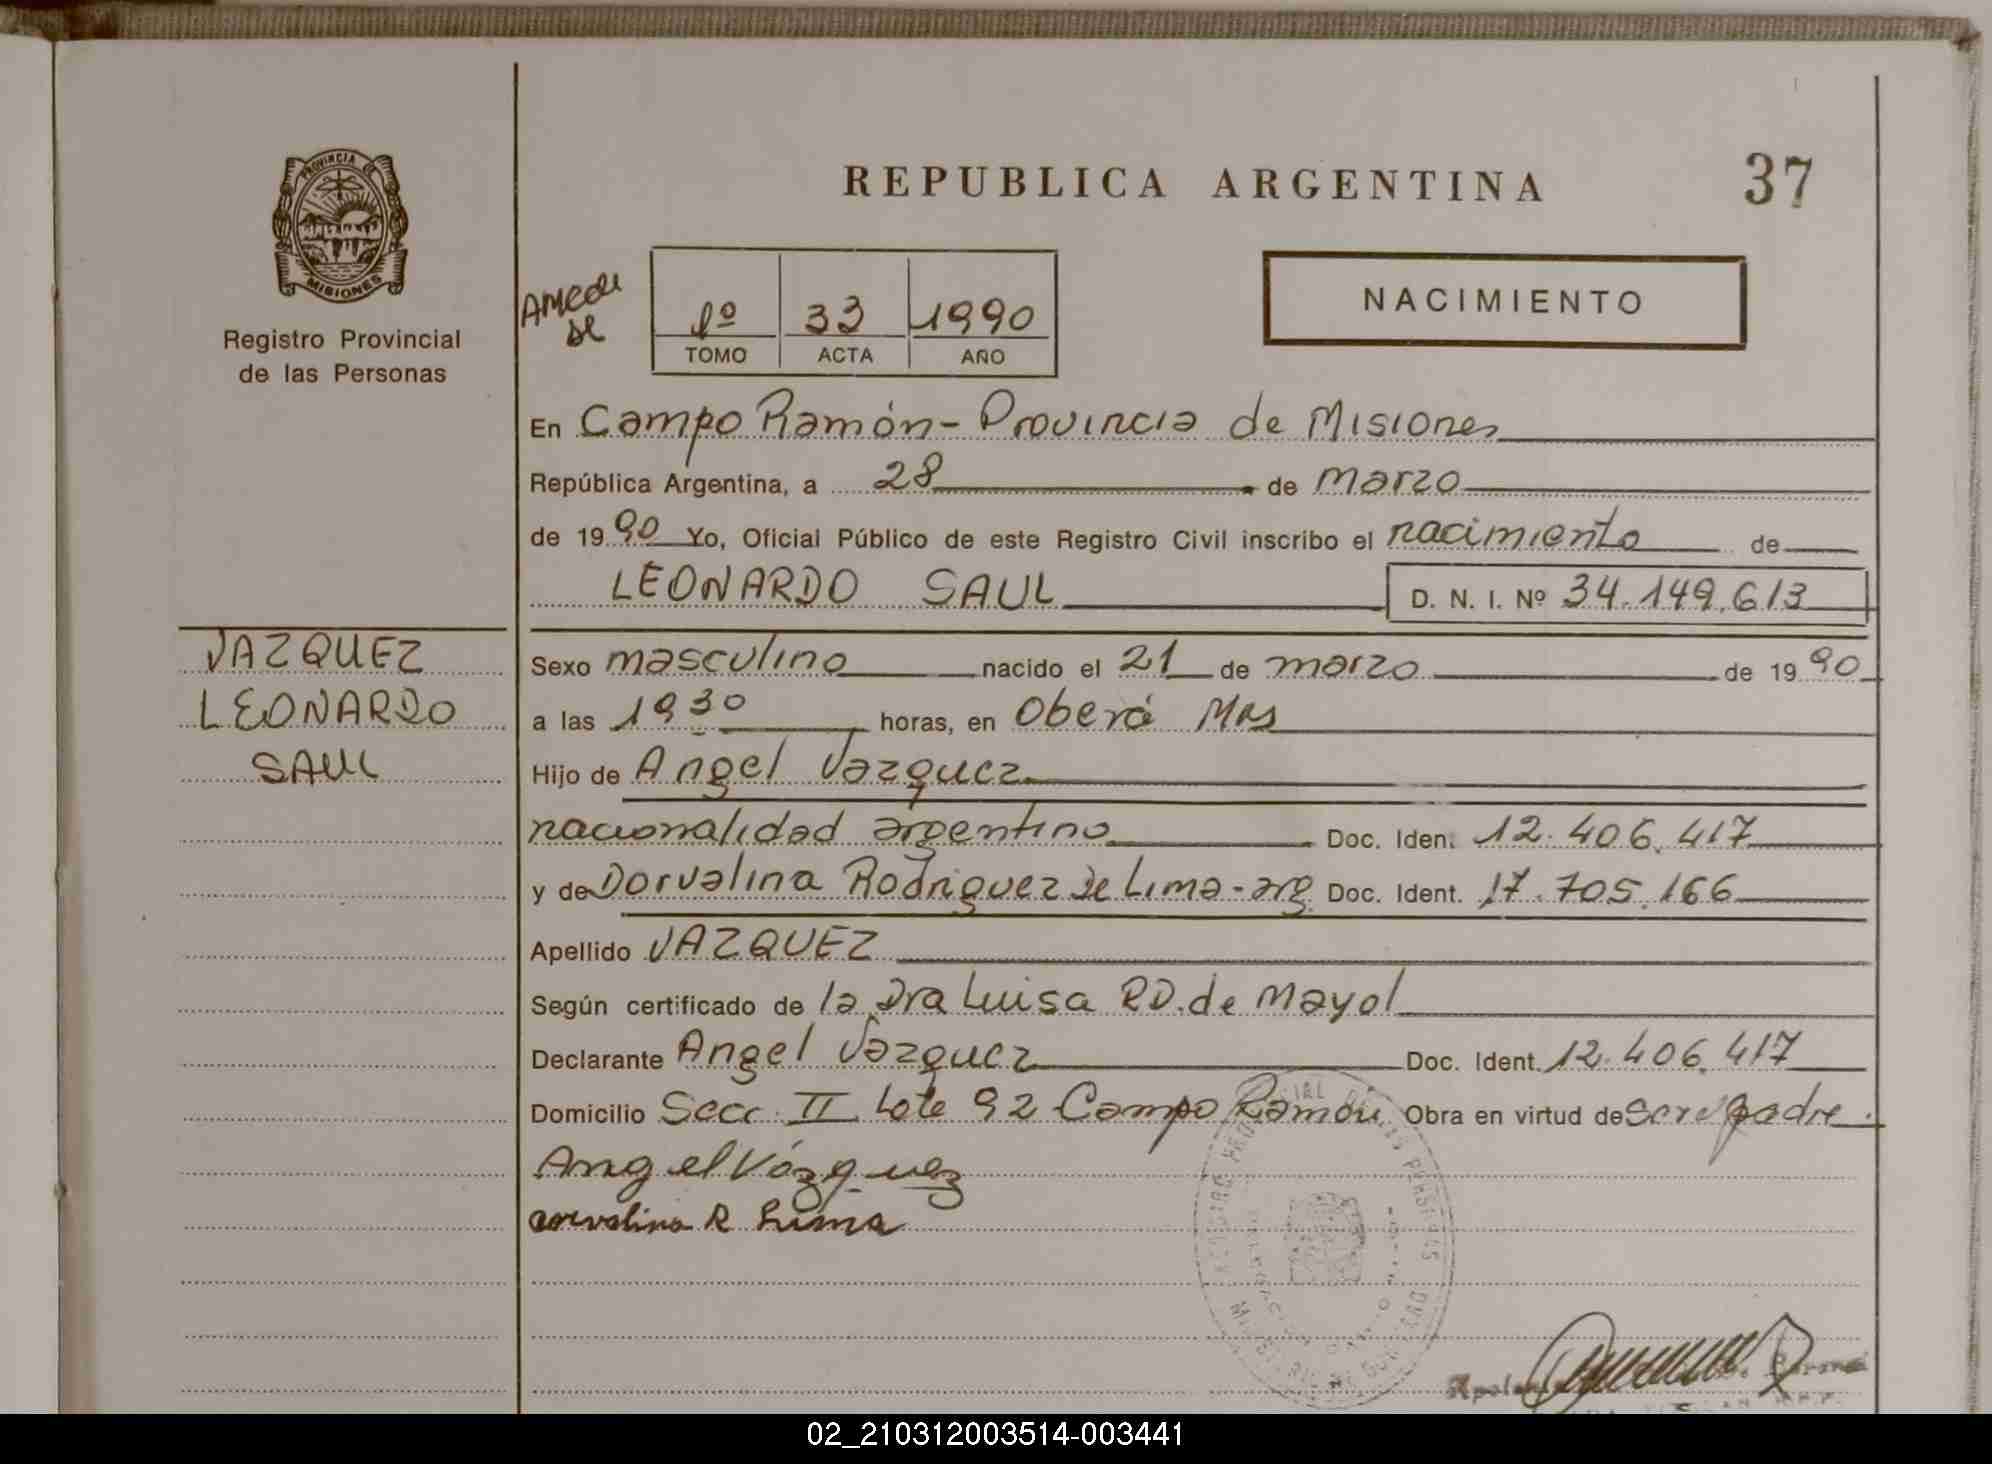 PROVINCIA DE
MISIONES
Registro Provincial
de las Personas
REPUBLICA ARGENTINA
37
1º 33 1990
TOMO ACTA AÑO
NACIMIENTO
En Campo Ramón - Provincia de Misiones
República Argentina, a 28 de marzo
de 1990 Yo, Oficial Público de este Registro Civil inscribo el nacimiento de
LEONARDO SAUL D. N. I. Nº 34.149.613
VAZQUEZ
LEONARDO
SAUL
Sexo masculino nacido el 21 de marzo de 1990
a las 19 30 horas, en Oberá Mns
Hijo de Angel Vazquez
nacionalidad argentino Doc. Iden. 12.406.417
y de Dorvalina Rodriguez De Lima - arg. Doc. Ident. 17.705.166
Apellido VAZQUEZ
Según certificado de la Dra Luisa RD. de Mayol
Declarante Angel Vazquez Doc. Ident. 12.406.417
Domicilio Secc. II Lote 92 Campo Ramón Obra en virtud de ser el padre.
Angel Vázquez
dorvalina R Lima
02_210312003514-003441